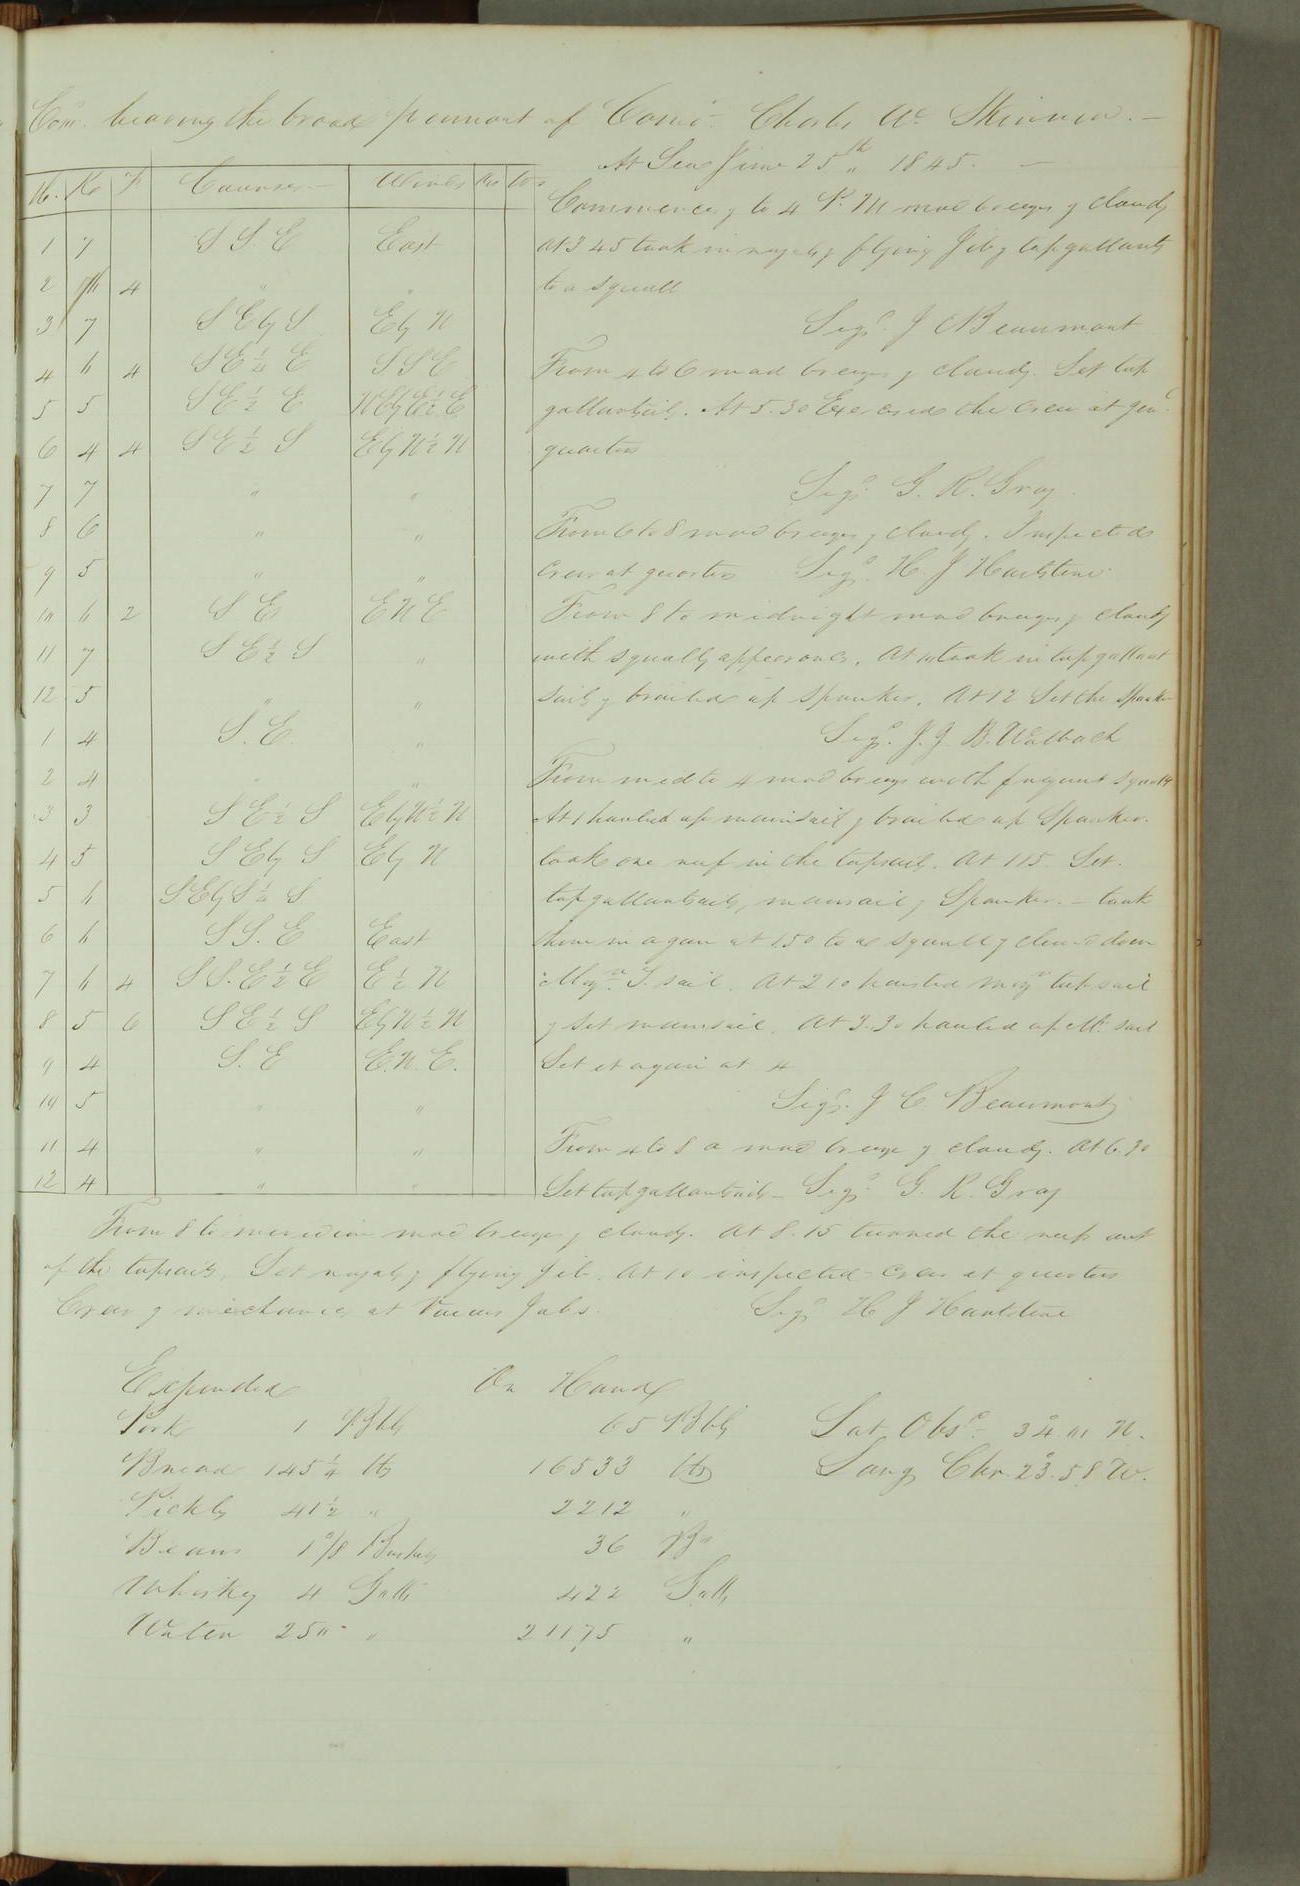 Com. bearing the broad pennant of Como. Charles W. Skinner. —
At Sea June 25th 1845. —
H. K. F. Courses Winds
1 7 S S. E East
2 4 " "
3 7 S E by S E by N
4 6 4 S E ¼ E S S E
5 5 S E ½ E
6 4 4 S E ½ S E by N ½ N
7 7 " "
8 6 " "
9 5 " "
10 6 2 S E E N E
11 7 S E ½ S "
12 5 " "
1 4 S. E. "
2 4 " "
3 3 S E ½ S E by N ½ N
4 5 S E by S E by N
5 6 S E by S ½ S
6 6 S S. E East
7 6 4 S S. E ½ E E ½ N
8 5 6 S E ½ S E by N ½ N
9 4 S. E E. N. E.
10 5 " "
11 4 " "
12 4 " "
Commences & to 4 P. M mod breezes & cloudy
At 3 45 took in royals & flying Jib & topgallants
to a squall
Sigd. J C Beaumont
From 4 to 6 mod breezes & cloudy. Set top
gallantsails. At 5.30 Exercised the crew at genl.
quarters
Sigd. G. R. Gray.
From 6 to 8 mod breezes & cloudy. Inspected
crew at quarters Sigd. H. J Hartstene
From 8 to midnight mod breezes & cloudy
with squally appearance. At 10 took in topgallant
sails & brailed up spanker. At 12 Set the Spanker
Sigd. J. J. B. Walbach
From mid to 4 mod breezes with frequent squalls
At 1 hauled up mainsail & brailed up Spanker.
took one reef in the topsails. At 1 15. Set.
topgallantsails, mainsail & Spanker. — took
them in again at 1 50 to a squall & clewed down
Mizn. T. sail. At 2 10 hoisted Mizn topsail
& set mainsail. At 3.30 hauled up M. sail
Set it again at 4
Sigd. J C. Beaumont
From 4 to 8 a mod breeze & cloudy. At 6.30
Set topgallantsails — Sigd. G. R. Gray
From 8 to meridian mod breeze & cloudy. At 8.15 turned the reefs out
of the topsails. Set royals & flying jib. At 10 inspected crew at quarters
Crew & mechanics at Various Jobs. Sigd H J Hartstene
Expended On Hand
Pork 1 Bbls 65 Bbls Lat Obsd — 34° " N.
Bread 145 ¼ lbs 16533 lbs Long Chr. 23°.58 W.
Pickls 41 ½ " 2212 "
Beans Bushels 36 Bs
Whiskey 4 Galls 422 Galls
Water 250 " 21175 "